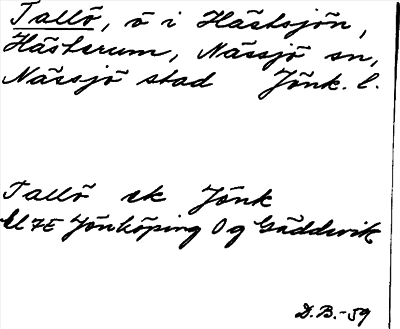 Tallö, ö i Hästsjön,
Hästerum, Nässjö sn,
Nässjö stad Jönk. l.
Tallö ek Jönk
bl 7E Jönköping Og Gäddvik
D.B.-59